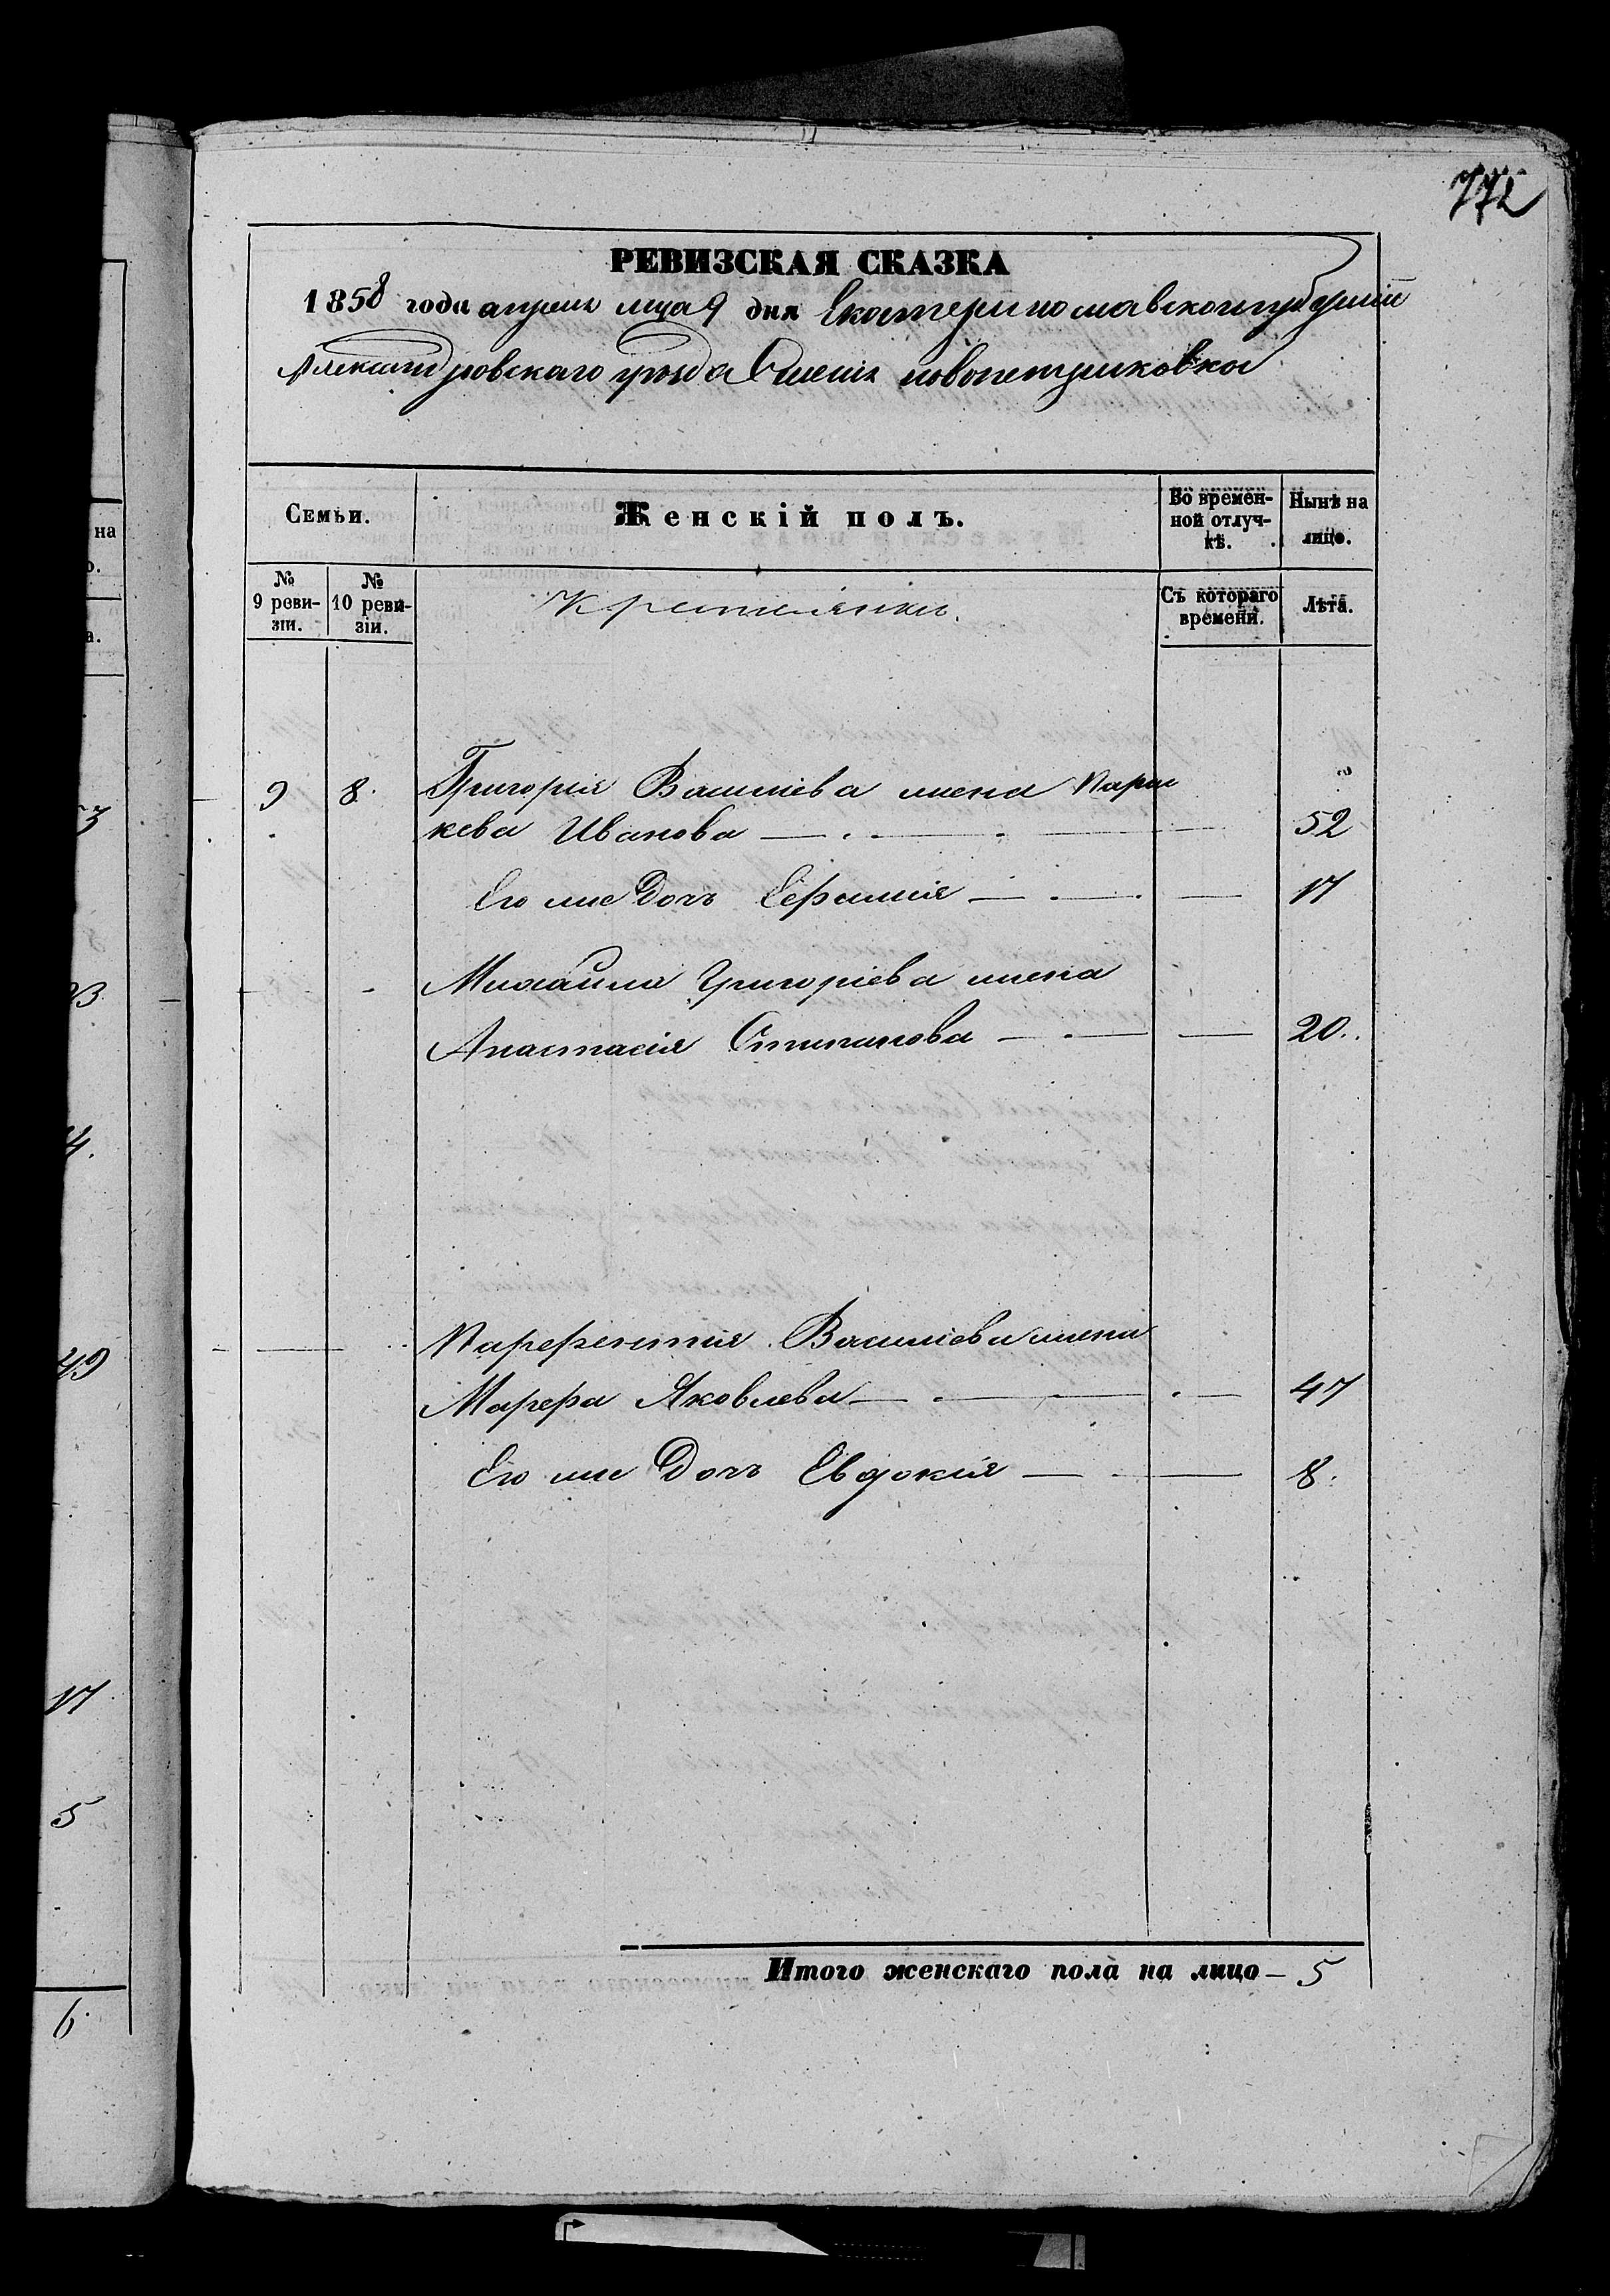 772
РЕВИЗСКАЯ СКАЗКА
1858 года апреля мца 9 дня Екатеринославской губерніи
Александровскаго уезда Селенія новопетриковки
на
Семьи.
Женскій полъ.
Во времен-
ной отлуч-
кѣ.
Нынѣ на
лицо.
№
9 реви-
зіи.
№
10 реви-
зіи.
Крестьянки.
Съ котораго
времени.
Лѣта.
9 8. Григорія Васильева жена Парас
кева Иванова — 52
Его же Дочь Евфимія — 17
Михаила Григоріева жена
Анастасія Стипанова — 20.
Парфентія Васильева жена
Марфа Яковлева — 47
Его же Дочь Евдокія — 8.
49
17
5
6.
Итого женскаго пола на лицо — 5